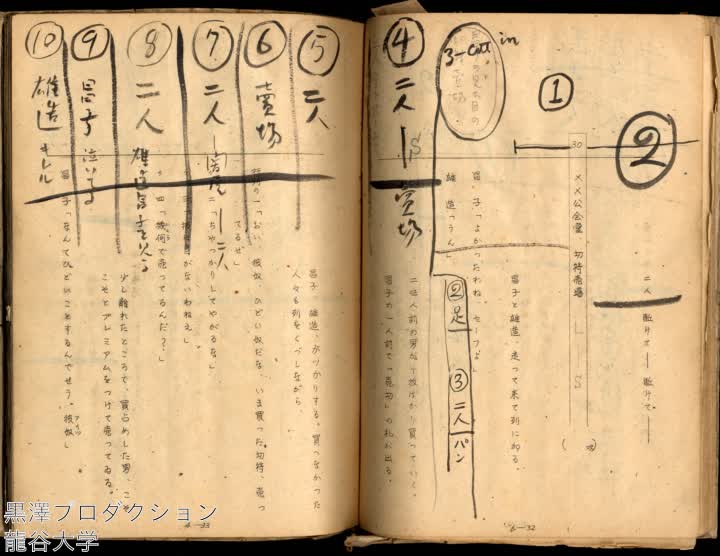 ②
二人、駈けて——駈けて——
30
××公会堂、切符売場
L
S
①
昌子と雄造、走って来て列に加る。
昌子「よかったわね、セーフよ」
雄造「うん」
②足
③二人｜パン
3-cut in
④二人—売場
S
二三人前の男が十枚ばかり買っていく。
昌子の一人前で「売切」の札が出る。
6—32
⑤二人
昌子、雄造、がっかりする。買えなかった
人々も列をくづしながら、
⑥売場
「おい、彼奴、ひどい奴だな、いま買った切符、売っ
てるぜ」
⑦二人—関尾—二人
二「ちゃっかりしてやがるな」
⑧二人 雄造昌子を見る
四「幾何で売ってるんだ?」
少し離れたところで、買占めした男、こそ
こそとプレミアムをつけて売ってゐる。
⑨昌子 泣いてる
⑩雄造 キレル
昌子「なんてひどいことするんでせう。彼奴」
アイツ
6—33
黒澤プロダクション
龍谷大学